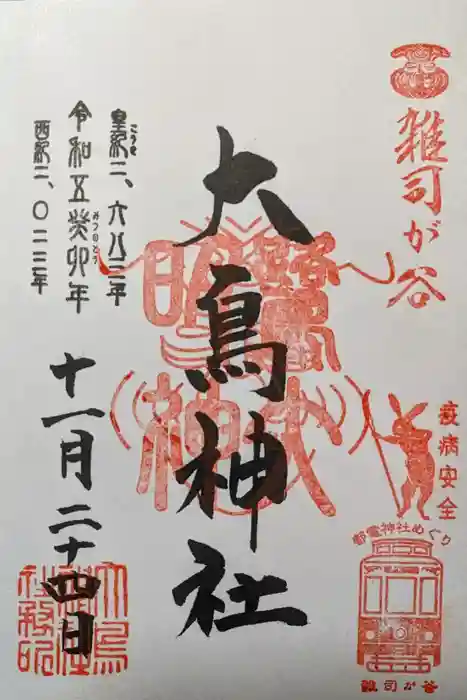 雑司が谷
疫病安全
都電神社めぐり
雑司が谷
大鳥神社
皇紀二、六八三年
こうき
令和五癸卯年
みづのとう
西紀二、〇二三年
十一月二十四日